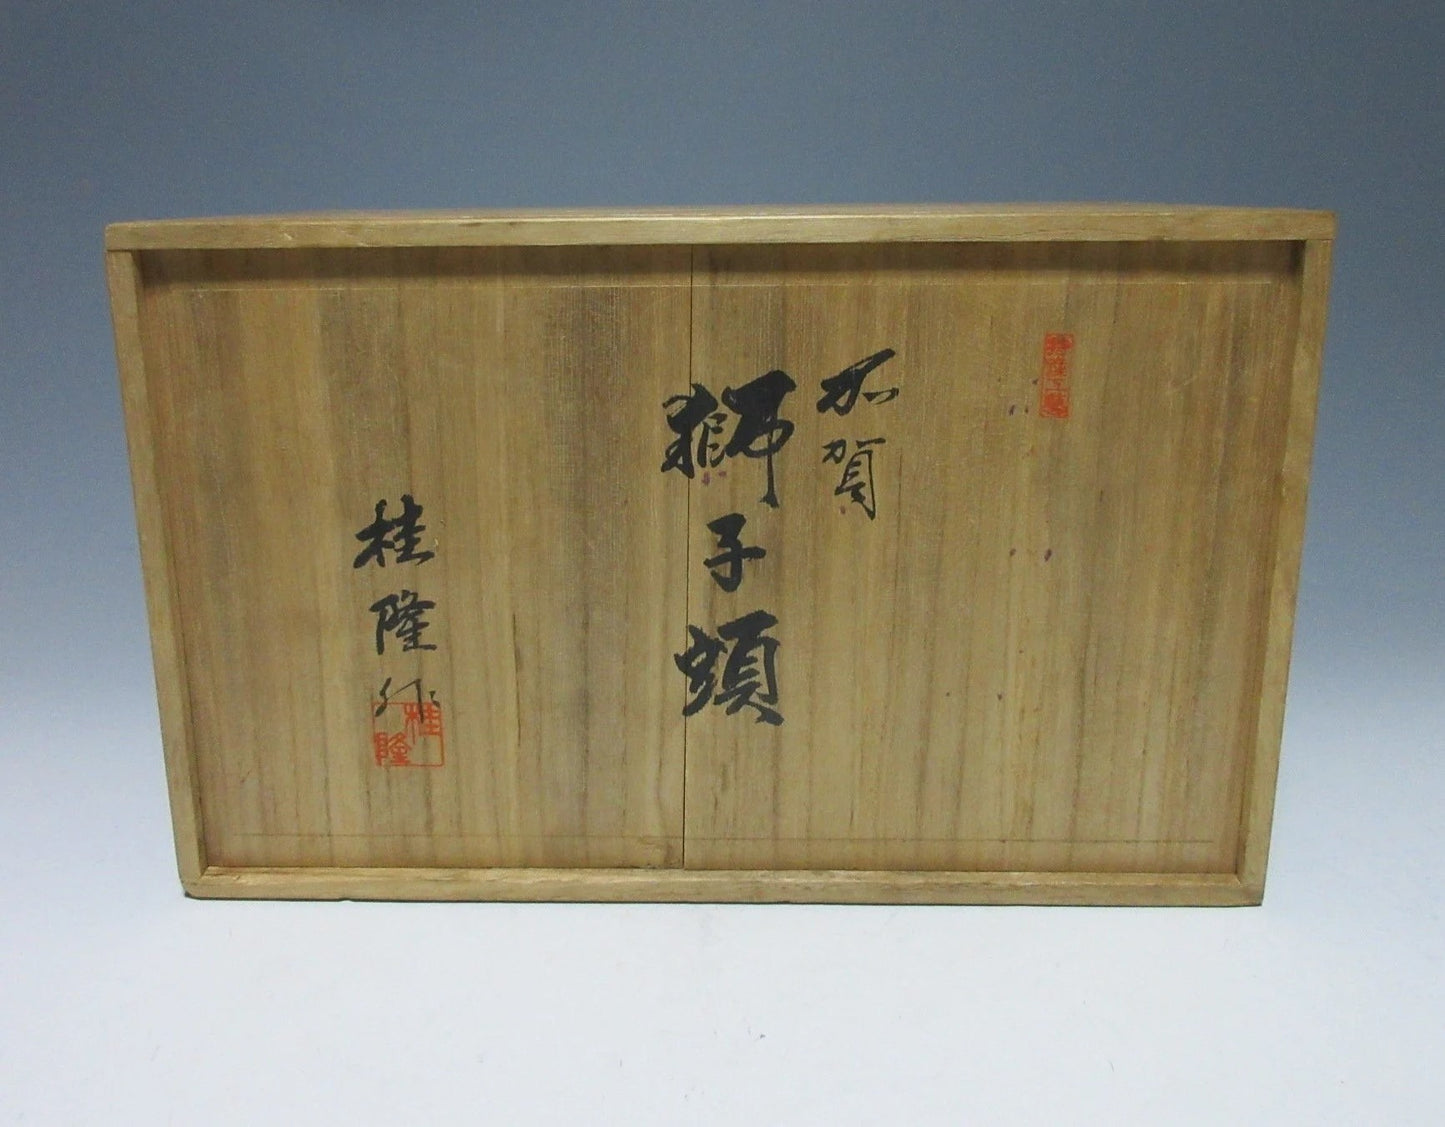 加賀
獅子頭
桂隆作
桂隆